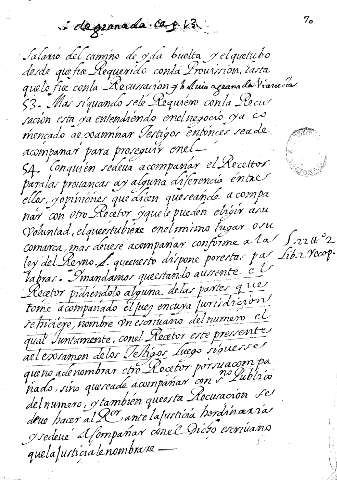 de granada. Ca. 
70
Salario del camino de yda buelta y el q̃ estubo
desde que fue Requerido con la Provision, hasta
que lo fue con la Recusaçion
53. Mas si quando se le Requiere con la Recu
saçion esta ya entendiendo en el negocio, y a co
mençado a examinar Testigos entonces se a de
acompañar para proseguir en el.
54. Con quien se deva acompañar el Recetor
para las provanças ay alguna diferencia entre
ellos, y opiniones que diçen que se an de acompa
ñar con otro Recetor y que lo pueden eligir a su
Voluntad, el que estubiere en el mismo lugar o su
comarca, mas devese acompañar conforme a la
ley del Reyno. que en esto dispone por estas pa
labras. Y mandamos que estando aussente el
Recetor pidiendolo alguna de las partes que
tome acompañado el juez en cuya jurisdicion
se hiciere, nombre un escrivano del numero el
qual juntamente, con el Recetor este pressente
a el exsamen de los Testigos luego siguesse
que no a de nombrar otro Recetor por su acom pa
ñado. sino que se a de acompañar con sno Publico
del numero, y tambien que esta Recusacion se
deve hacer al Ror. ante la justicia hordinaria
y se deve acompañar con el Dicho escrivano
que la justicia le nombrare
l. 22 ti. 2
Lib. 2 recop.